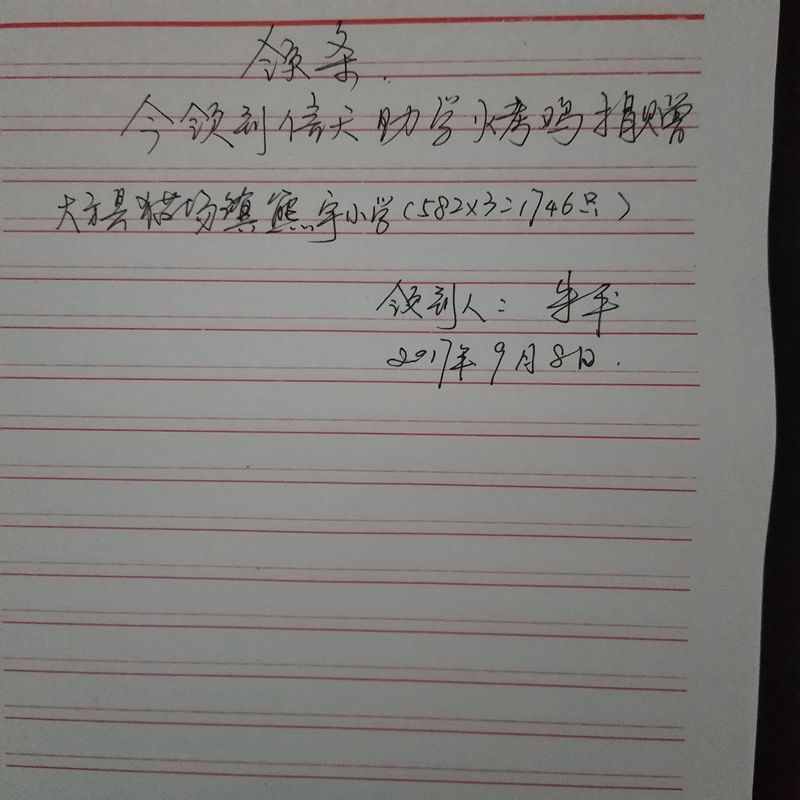 领条.
今领到信天助学烤鸡捐赠
大方县猫场镇熊宇小学(582x3=1746只)
领到人: 朱平
2017年9月8日.